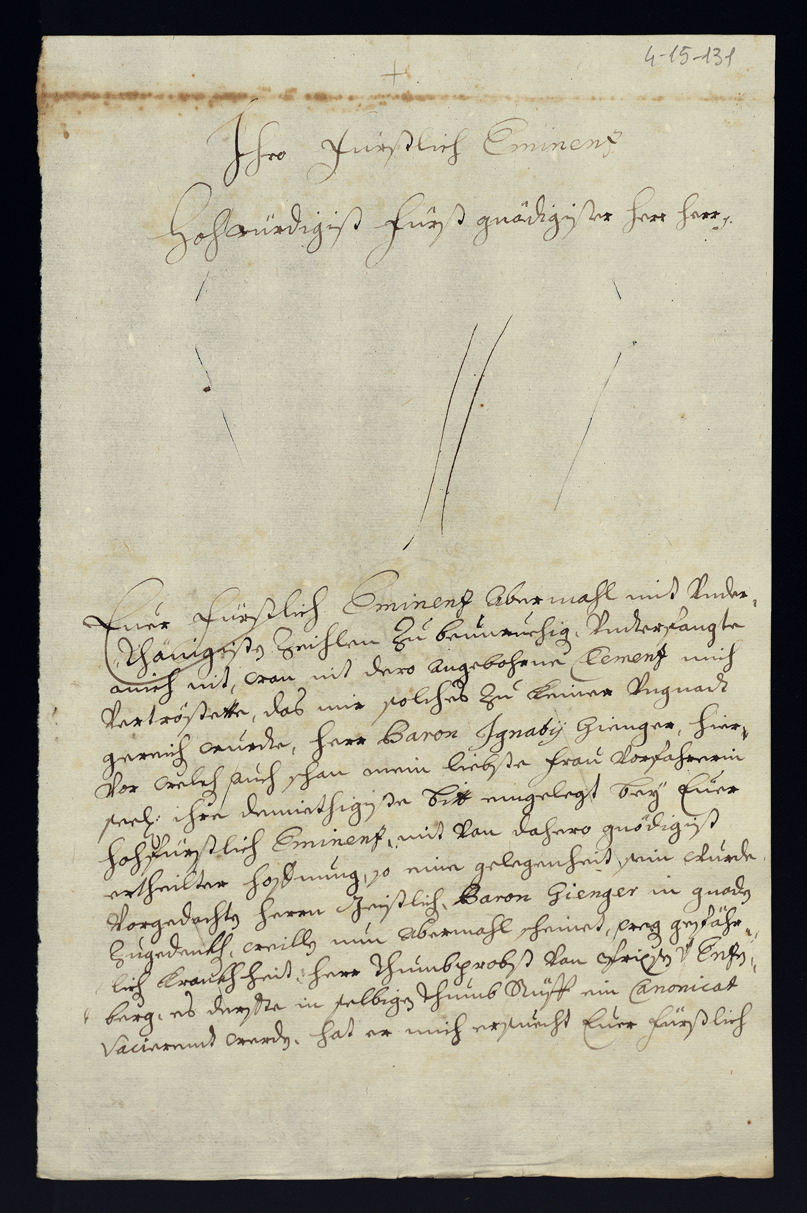 4-15-131
+
Ihro Fürstlich Eminenz
Hochwürdigist Fürst gnädigister Herr Herr
Euer Fürstlich Eminenz abermahl mit Under-
thänigisten Zeihlen zu beunruhig. Unterfangte
mich nit, wan nit dero angebohrne Clemenz mich
Vertröstette, das mir solches zu keiner Ungnadt
gereich wurde, Herr Baron Ignatij Gienger, hier-
Vor welch auch schan mein liebste Frau Vorfahrerin
seel: ihre demiethigiste bitt eingelegt bey Euer
hochfürstlich Eminenz, mit Von dahero gnädigist
ertheilter hoffnung, so eine gelegenheit sein wurde
Vorgedachten Herrn Geistlich. Baron Gienger in gnaden
Zugedenkh, weillen nun abermahl scheinet, weg gefähr-
lich Krankhheit Herr Thumbprobst Von
berg, es derffte in selbigen Thumb Stüfft ein Canonicat
Vacierend werden, hat er mich ersuecht Euer Fürstlich